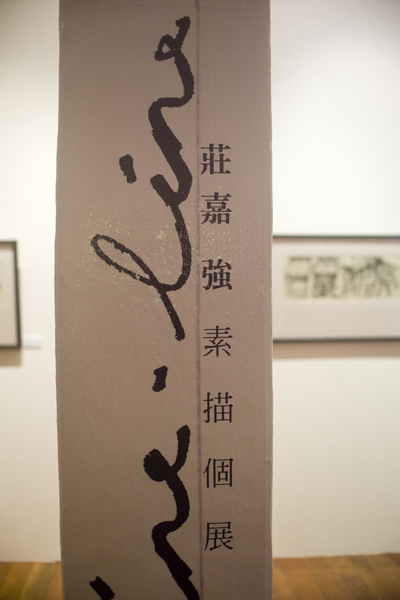 莊嘉強素描個展